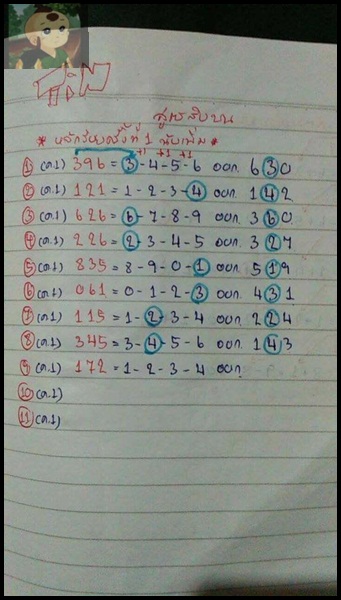 สูตรสิบบน
* หลักร้อยครั้งที่ 1 นับเพิ่ม *
+1 +1 +1
① (ต.1) 396 = 3-4-5-6 ออก 630
② (ต.1) 121 = 1-2-3-4 ออก 142
③ (ต.1) 626 = 6-7-8-9 ออก 360
④ (ต.1) 226 = 2-3-4-5 ออก 327
⑤ (ต.1) 835 = 8-9-0-1 ออก 519
⑥ (ต.1) 061 = 0-1-2-3 ออก 431
⑦ (ต.1) 115 = 1-2-3-4 ออก 224
⑧ (ต.1) 345 = 3-4-5-6 ออก 143
⑨ (ต.1) 172 = 1-2-3-4 ออก
⑩ (ต.1)
⑪ (ต.1)